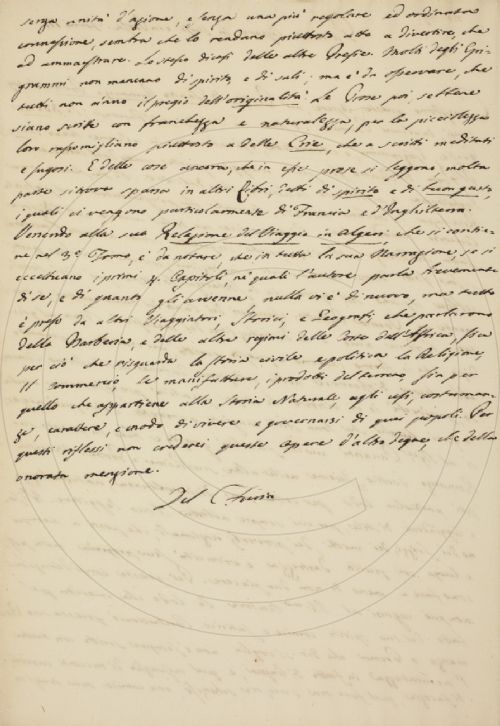 senza unità d'azione, e senza una più regolare ed ordinata
connessione, sembra che lo rendano piuttosto atto a divertire, che
ad ammaestrare. Lo stesso dicasi delle altre Poesie. Molti degli Epi-
grammi non mancano di spirito, e di sali; ma è da osservare, che
tutti non hanno il pregio dell'originalità. Le Prose poi sebbene
siano scritte con franchezza e naturalezza, per la picciolezza
loro rassomigliano piuttosto a delle Crie, che a scritti meditati
e sugosi. E delle cose ancora, che in esse prose si leggono, molta
parte si trova sparsa in altri Libri, tutti di spirito e di buon gusto,
i quali ci vengono particolarmente di Francia e d'Inghilterra.
Venendo alla sua Relazione del Viaggio in Algeri che si contie-
ne nel 3.º Tomo, è da notare, che in tutta la sua Narrazione, se si
eccettuano i primi 4. Capitoli, ne' quali l'autore parla brevemente
di se, e di quanto gli avvenne nulla vi è di nuovo, ma tutto
è preso da altri Viaggiatori, Storici, e Geografi, che parlarono
della Barberia, e delle altre regioni delle Coste dell'Affrica, sia
per ciò che risguarda la storia civile e politica, la Religione,
il commercio le manifatture, i prodotti del terreno, sia per
quello che appartiene alla Storia Naturale, agli usi, costuman-
ze, carattere, e modo di vivere e governarsi di quei popoli. Per
questi riflessi non crederei queste opere d'altro degne, che della
onorata menzione.
Del